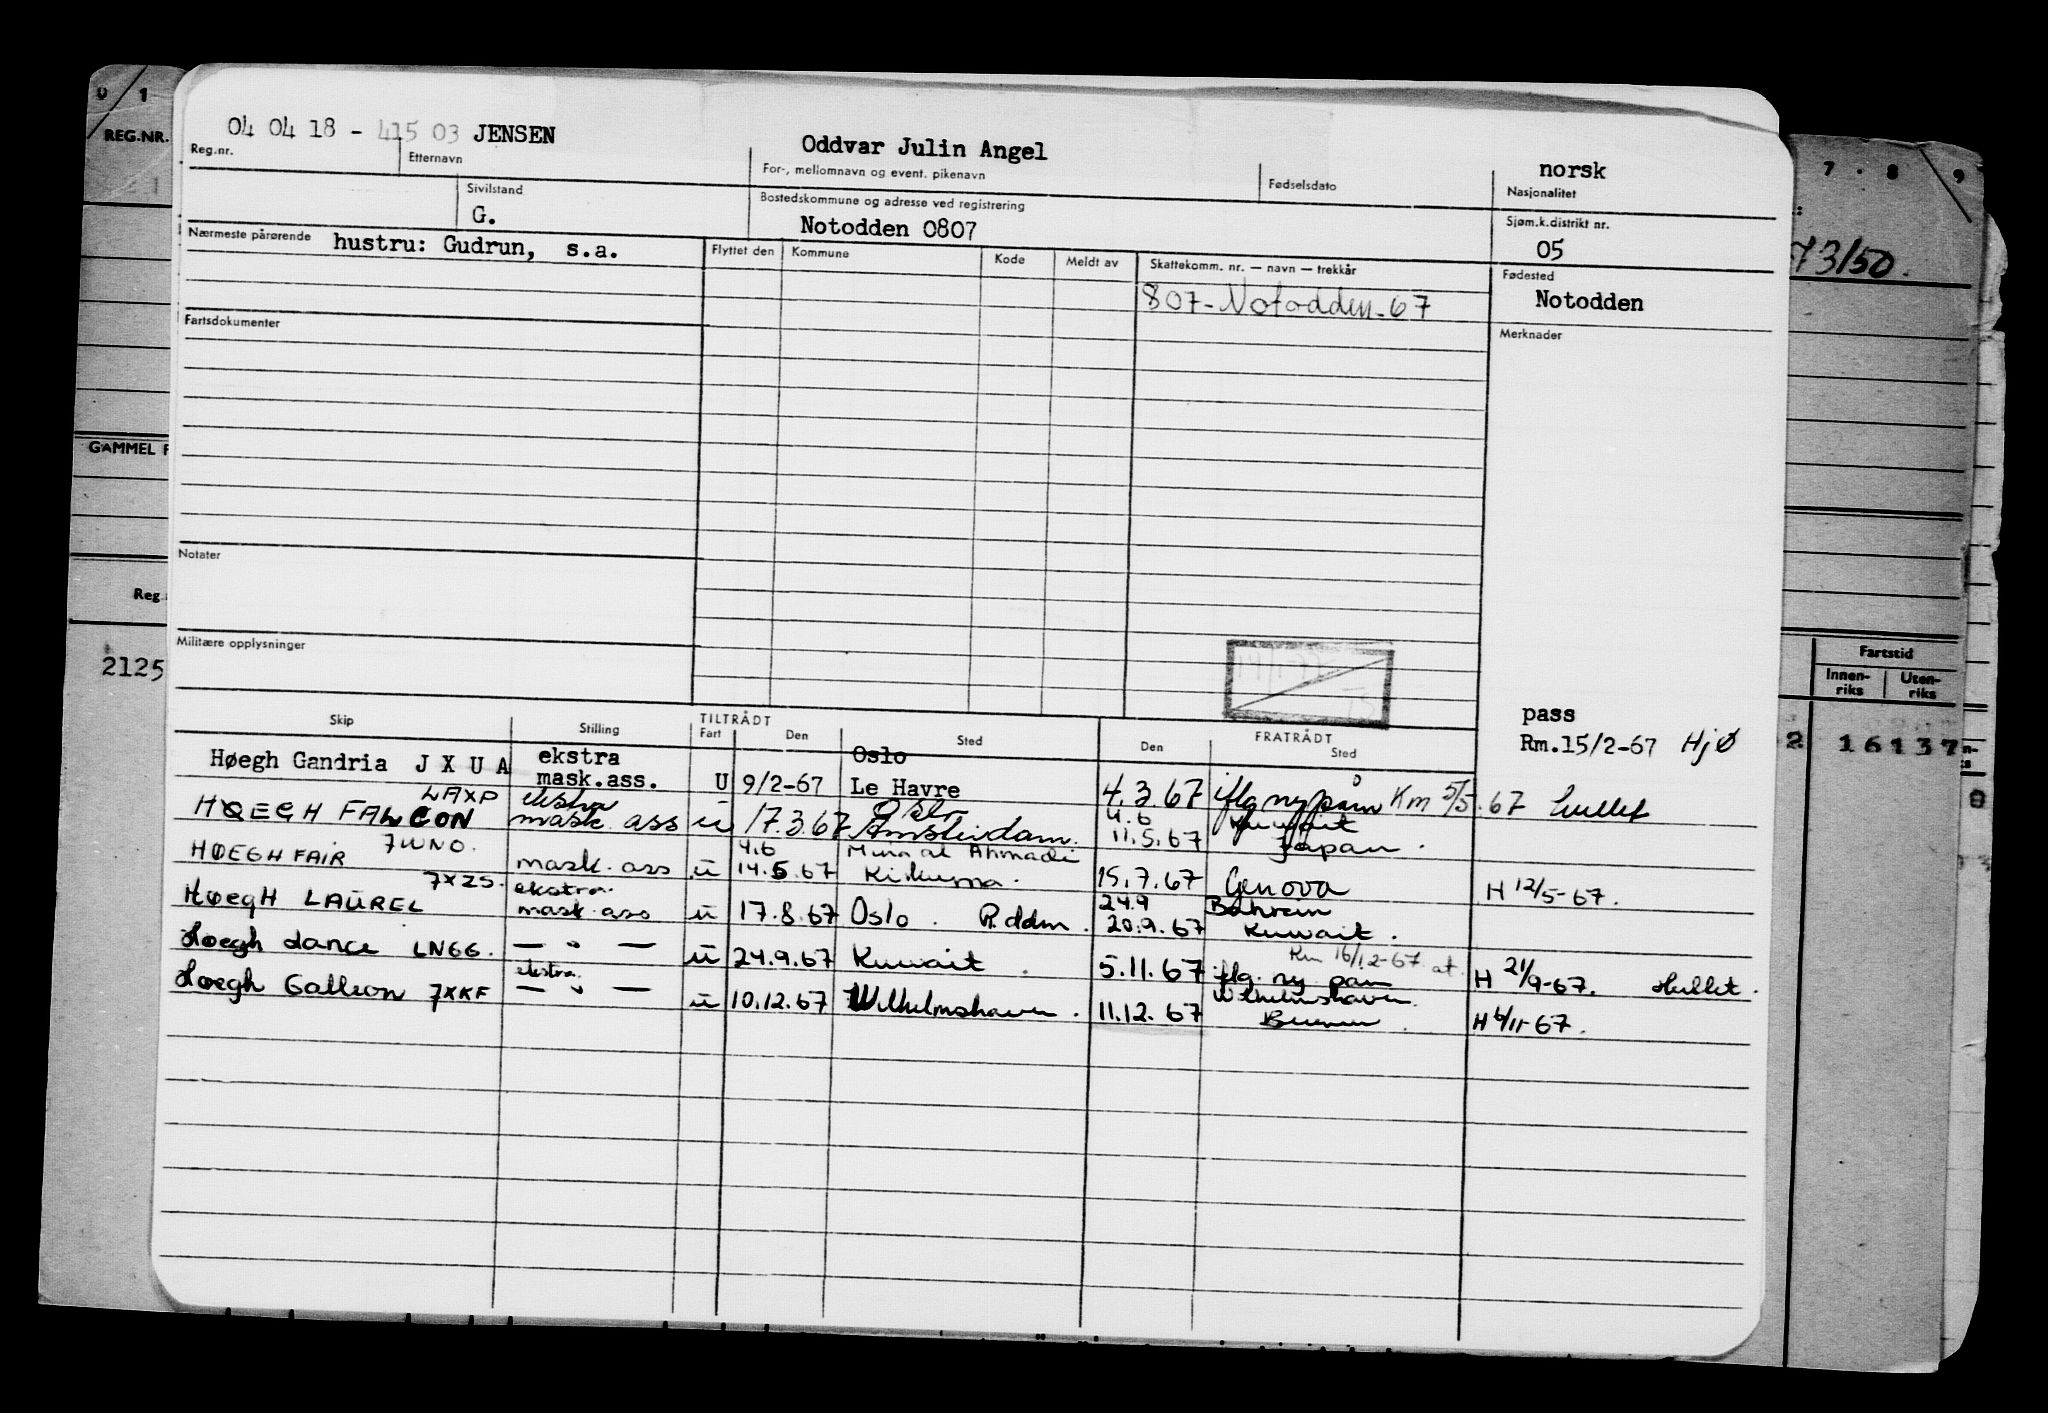 0 / 1
REG.NR.
04 04 18 - 415 03 JENSEN
Oddvar Julin Angel
norsk
7 . 8 9
Reg.nr.
Etternavn
For-, mellomnavn og event. pikenavn
Fødselsdato
Nasjonalitet
Sivilstand
G.
Bostedskommune og adresse ved registrering
Notodden 0807
Sjøm.k.distrikt nr.
05
73/50.
Nærmeste pårørende hustru: Gudrun, s.a.
Flyttet den Kommune Kode Meldt av Skattekomm. nr. — navn — trekkår
Fødested
Notodden
807-Notodden-67
Fartsdokumenter
Merknader
GAMMEL F
Notater
Reg.
Militære opplysninger
2125
Fartstid
Innen-riks Uten-riks
16137
pass
Rm.15/2-67 HjØ
Skip Stilling TILTRÅDT Fart Den Sted FRATRÅDT Den Sted
Høegh Gandria J X U A ekstra mask.ass. U 9/2-67 Oslo Le Havre 4.3.67 iflg ny påm Km 5/5.67 hullet
HØEGH FALCON LAXP ekstra mask. ass u 17.3.67 Oslo Amsterdam. 4.6 11.5.67 Kuwait Japan.
HØEGH FAIR 7WNO. mask. ass u 4.6 14.5.67 Mina al Ahmadi 15.7.67 Genova H 12/5-67.
HøegH LAUREL 7XZS. ekstra. mask.ass u 17.8.67 Oslo. R.ddm. 24.9 20.9.67 Bahrein Kuwait.
Høegh Lance LN66. — " — u 24.9.67 Kuwait. 5.11.67 iflg. ny påm Rm 16/12-67 at. H 21/9-67. Hullet.
Høegh Galleon 7XKF ekstra — " — u 10.12.67 Wilhelmshaven. 11.12.67 Wilhelmshaven. Bremen. H 6/11-67.